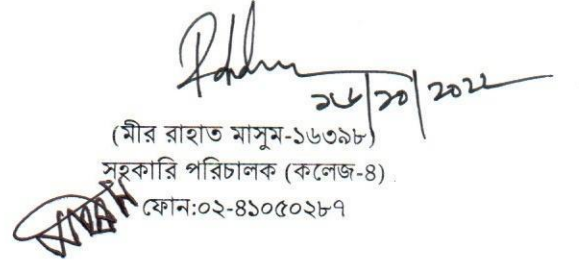 ১৬/১০/২০২২
(মীর রাহাত মাসুম-১৬৩৯৮)
সহকারি পরিচালক (কলেজ-৪)
ফোন:০২-৪১০৫০২৮৭